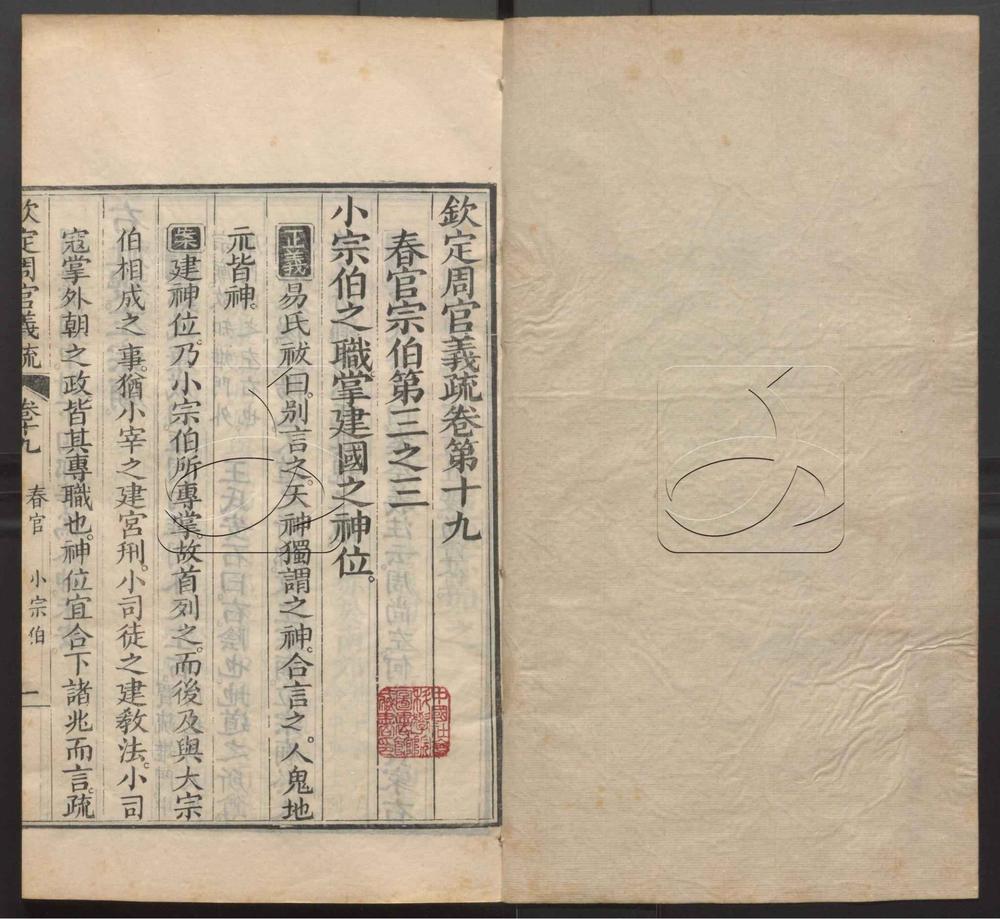 欽定周官義疏卷第十九
春官宗伯第三之三
小宗伯之職掌建國之神位。
正義易氏祓曰。别言之。天神獨謂之神。合言之。人鬼地
示皆神。
案建神位。乃小宗伯所專掌。故首列之。而後及與大宗
伯相成之事。猶小宰之建宮刑。小司徒之建教法。小司
寇掌外朝之政皆其專職也。神位宜合下諸兆而言。疏
欽定周官義疏 卷十九 春官 小宗伯 一